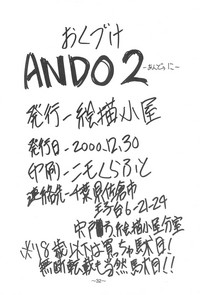 おくづけ
ANDO2
-あんどぅ に-
発行-絵描小屋
発行日-2000.12.30
印刷-ニモくらふと
連絡先-千葉県佐倉市
王子台6-21-24
宍戸方.絵描小屋分室
※18歳以下は買っちゃ駄目!
無断転載も当然駄目!!
-32-